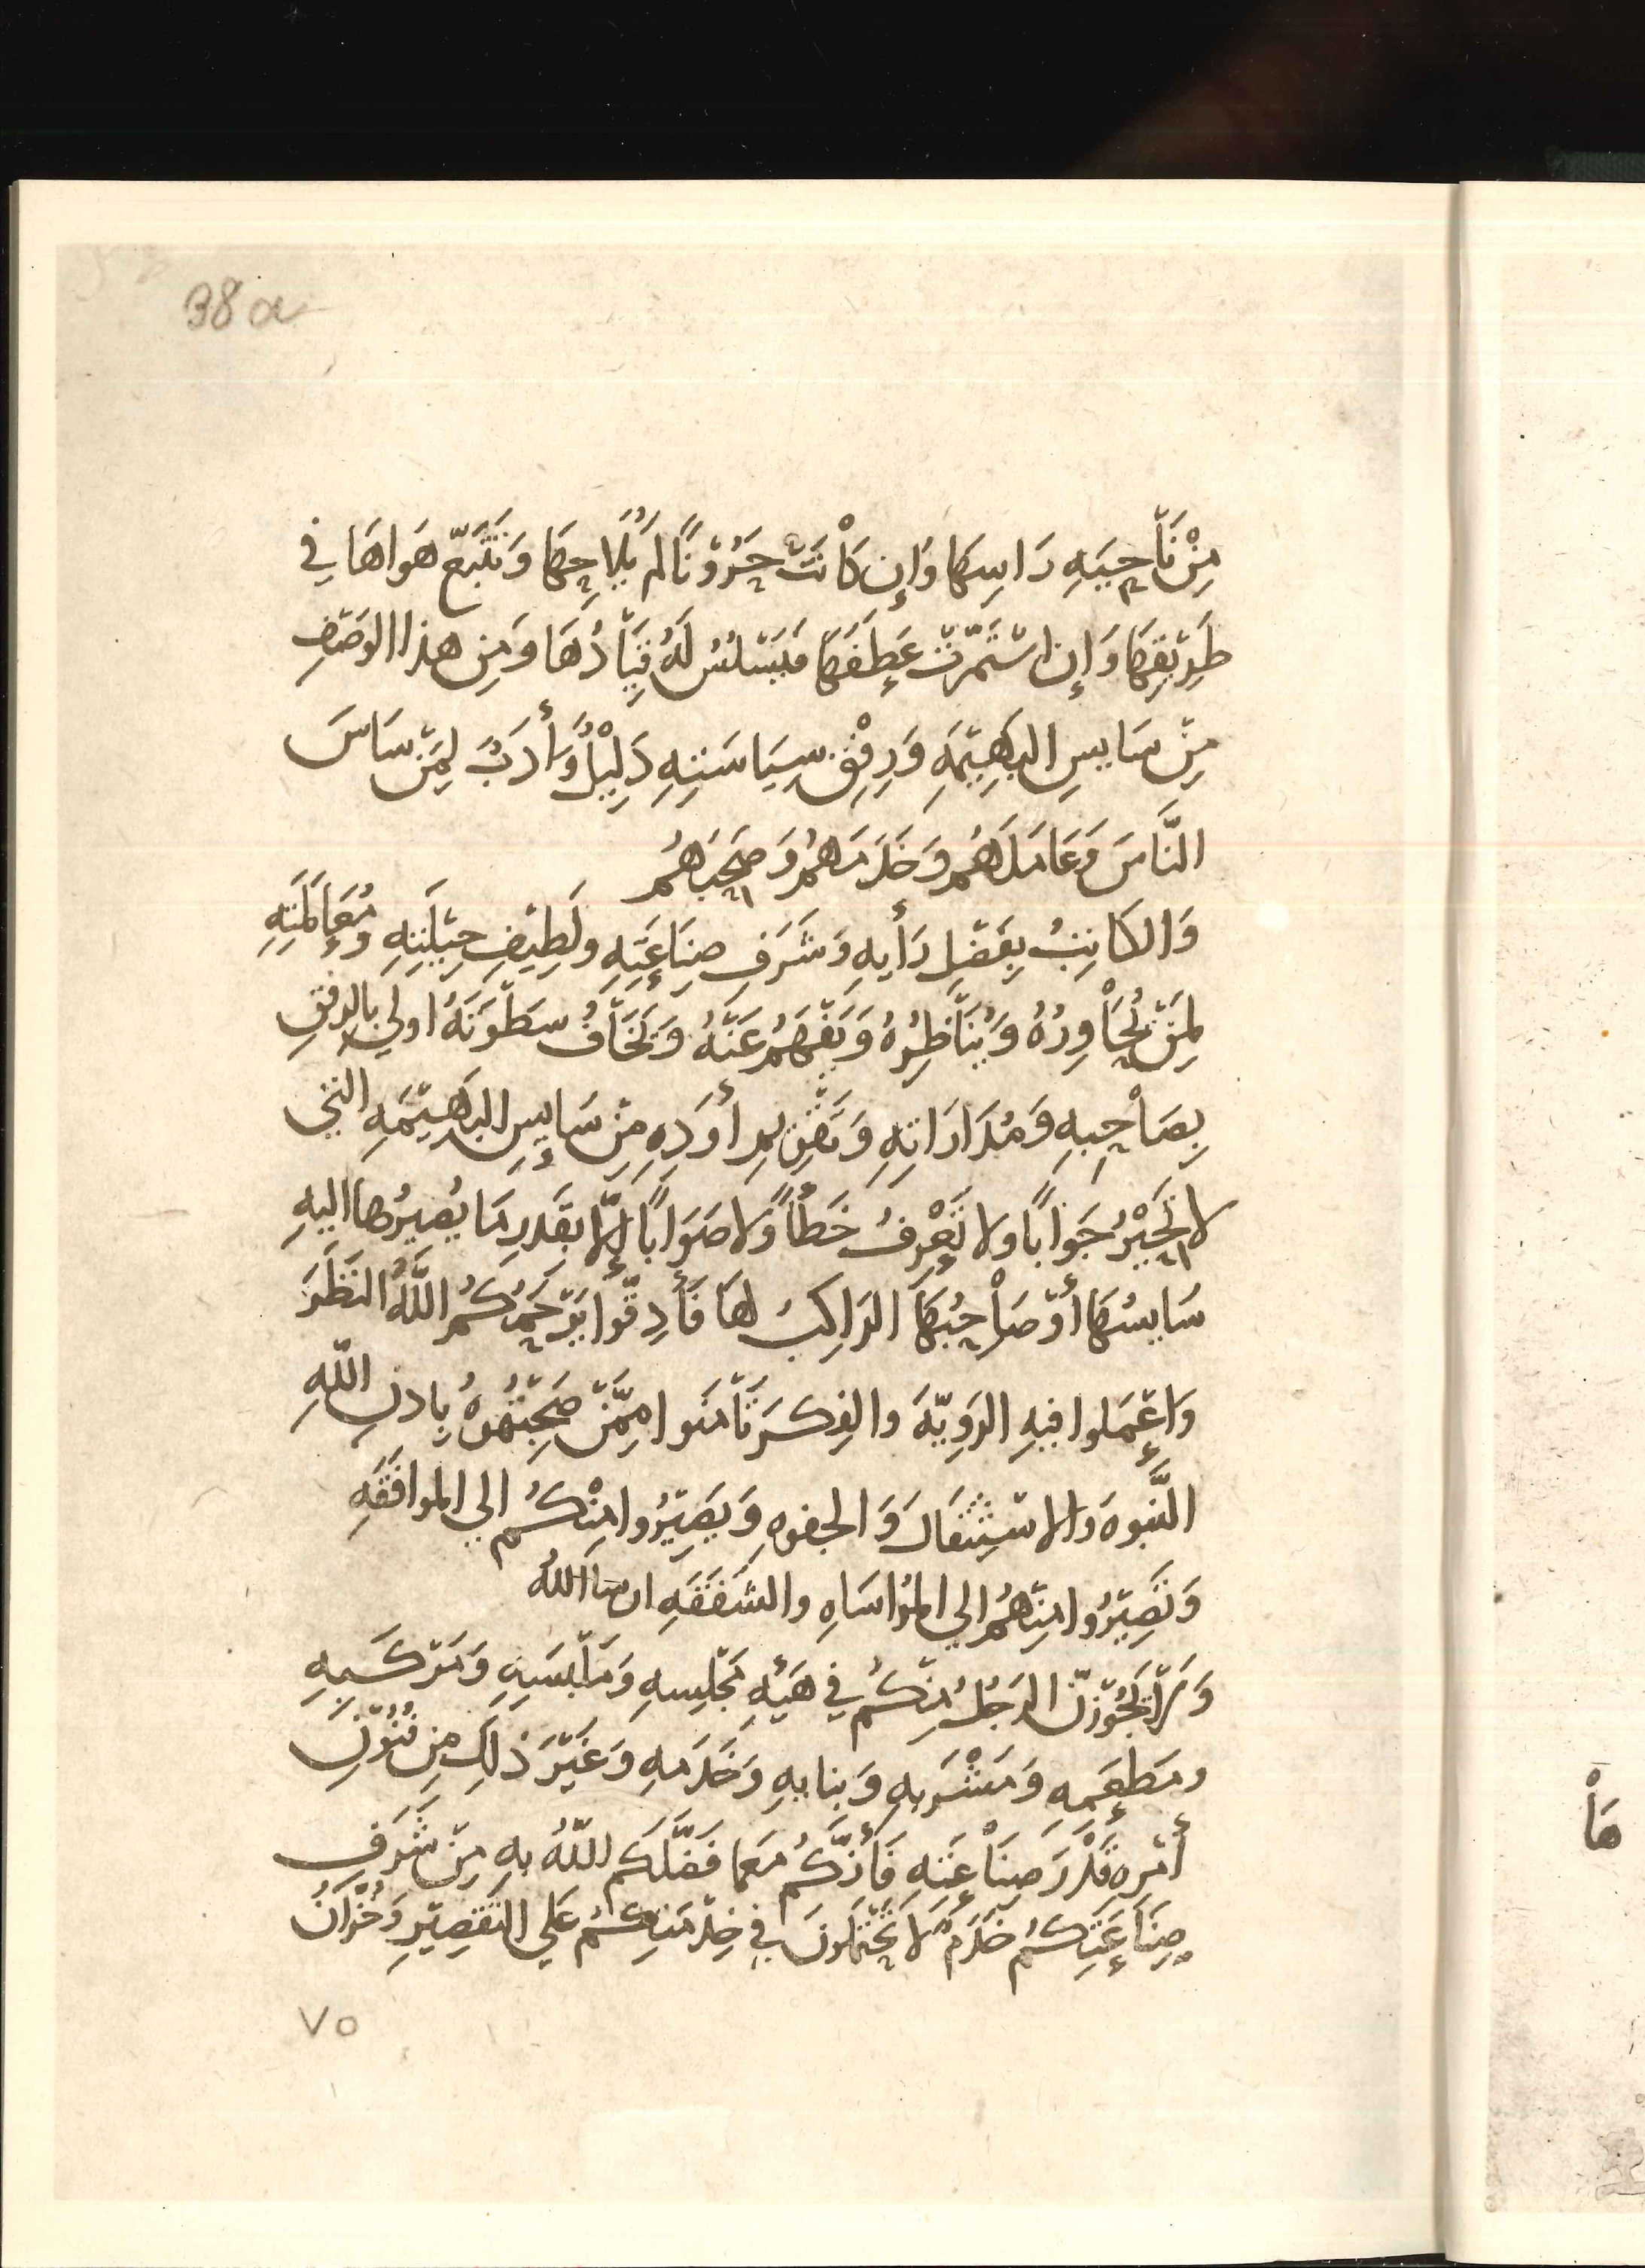 38a
مِنْ نَاْحِيَهِ رَاسِهَا وَإِن كَاْنَتْ حَرُوْنًا لم يُلَاحِهَا وَتَتَبَّعْ هَواهَا فِي
طَرِيْقِهَا وَإِن اسْتَمَرَّتْ عَطَفَهَا فَيَسْلسُ لَهُ قِيَاْدُهَا وَمِن هذا الوَصْفِ
مِنْ سَايسِ البَهِيْمَهِ وَرِفْقِ سِيَاسَتِهِ دَلِيْلٌ وَأَدَبٌ لِمَنْ سَاسَ
النَّاسَ وَعَامَلَهُم وَخَدَمَهُمْ وَصَحِبَهُم
وَالكَاتِبُ بِعَقْلِ رَأْيِهِ وَشَرَفِ صِنَاعَتِهِ وَلَطِيْفِ حِيْلَتِهِ وَمُعَامَلَتِهِ
لِمَنْ يُحَاْوِرُهُ وَيُنَاْظِرُهُ وَيَفْهَمُ عَنْهُ وَيَخَاْفُ سَطْوَتَهُ اولي بالرفْقِ
بِصَاْحِبِهِ وَمُدَارَاتِهِ وَتَقْوِيْمِ أَوَدِهِ مِنْ سَايِسِ البَهِيْمَهِ التي
لا تُحِيْرُ جَوَابًا ولا تَعْرِفُ خَطَأً وَلا صَوَابًا إِلَّا بقَدرِ مَا يُصيرُها اليهِ
سَايسُهَا أَوْ صَاْحِبُهَا الرَاكِبُ لهَا فَأَدِقّوا يَرْحَمُكُمُ اللَّهُ النَظَرَ
وَاعْمَلوا فيهِ الرَوِيّهَ والفِكرَ تَأْمَنوا مِمَّنْ صَحِبْتُمُوهُ بِاذنِ اللهِ
النَّبوهَ والاسْتِثقَالَ وَالجفوهِ وَيَصِيْرُوا مِنْكُم الي الموافَقَهِ
وَتَصِيْرُوا مِنْهُمُ الي المُؤاسَاهِ والشَفَقَهِ ان شا اللهُ
وَلَا يَجُوْزنَّ الرَجُلُ مِنْكُم في هَيْئهِ مَجْلِسِهِ وَمَلْبَسِهِ وَمَرْكَبِهِ
ومَطعَمِهِ وَمَشْرَبِهِ وَبنايهِ وَخَدَمهِ وَغَيْرَ ذلِكَ مِن فُنُوْنِ
أَمْرِهِ قَدْرَ صِنَاْعَتِهِ فَأنَّكُم مَعما فَضَّلَكم اللّهُ بِهِ مِنْ شَرَفِ
صِنَاعَتِكُمْ خَدَمٌ لَا تُحْتَمَلُونَ في خِدْمَتِكُمْ عَلي التَقصِيْرِ وَخُزَّانٌ
٧٥
هَاْ